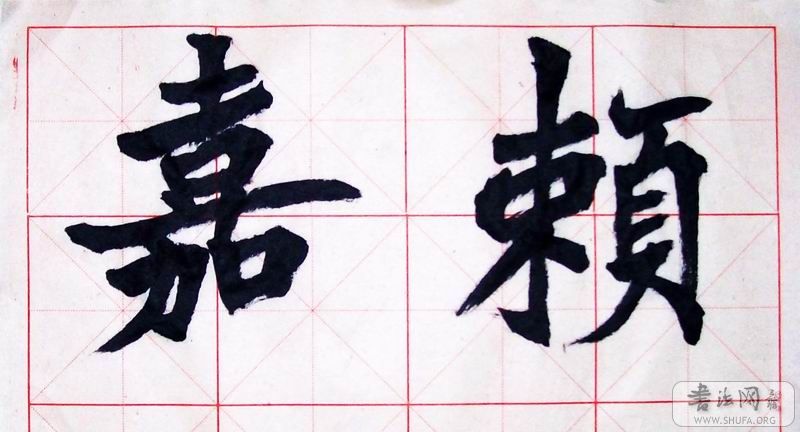 嘉賴
书法网
WWW.SHUFA.ORG